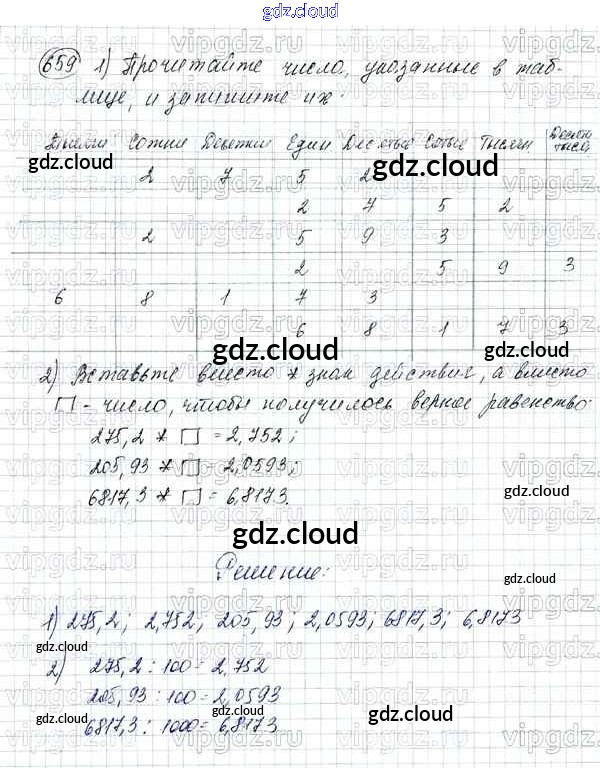 gdz.cloud
659 1) Прочитайте числа, указанные в таб-
лице, и запишите их.
Тысячи Сотни Десятки Един Десятые Сотые Тысячн Десят тысяч
2 7 5 2
2 7 5 2
2 5 9 3
2 5 9 3
6 8 1 7 3
6 8 1 7 3
2) Вставьте вместо * знак действия, а вместо
□ - число, чтобы получилось верное равенство:
275,2 * □ = 2,752;
205,93 * □ = 2,0593;
6817,3 * □ = 6,8173.
gdz.cloud
Решение:
1) 275,2; 2,752; 205,93; 2,0593; 6817,3; 6,8173
2) 275,2 : 100 = 2,752
205,93 : 100 = 2,0593
6817,3 : 1000 = 6,8173
gdz.cloud